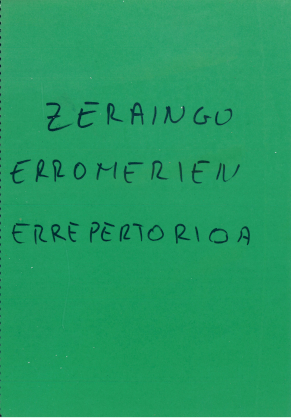 ZERAINGO
ERROMERIEN
ERREPERTORIOA